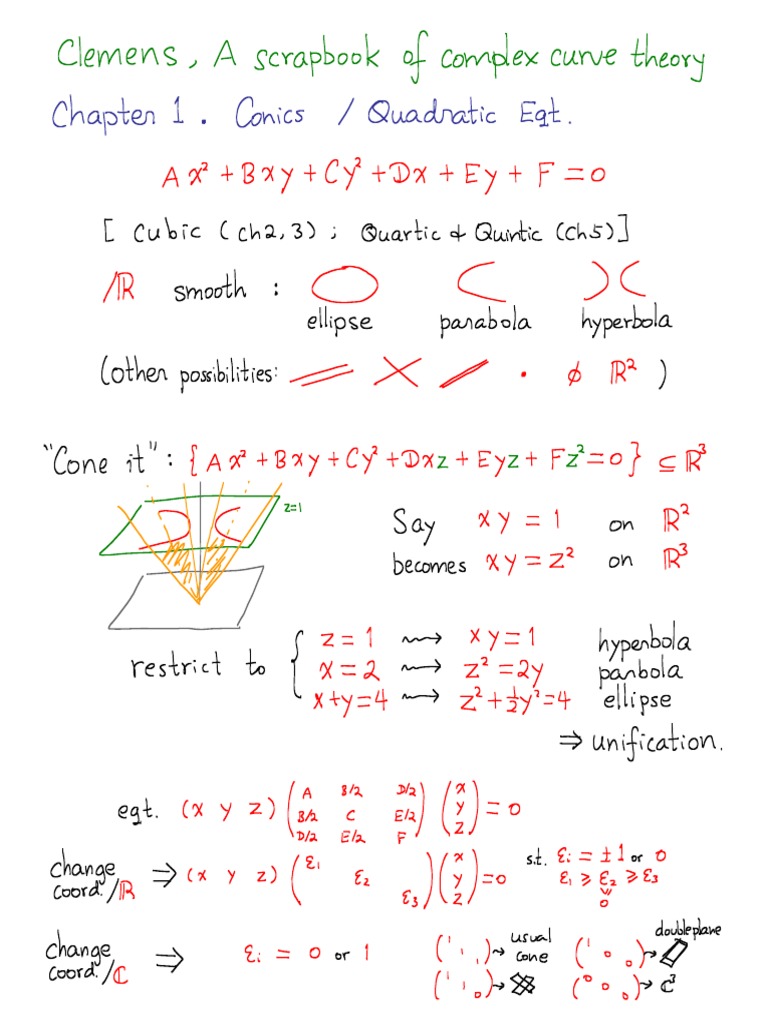 Clemens, A scrapbook of complex curve theory
Chapter 1. Conics / Quadratic Eqt.
Ax² + Bxy + Cy² + Dx + Ey + F = 0
[ Cubic (Ch2,3) ; Quartic & Quintic (Ch5)]
/ℝ smooth :
ellipse parabola hyperbola
(other possibilities: · ∅ ℝ² )
"Cone it" : { Ax² + Bxy + Cy² + Dxz + Eyz + Fz² = 0 } ⊆ ℝ³
z=1
Say xy = 1 on ℝ²
becomes xy = z² on ℝ³
restrict to { z = 1 ⇝ xy = 1 hyperbola
x = 2 ⇝ z² = 2y parbola
x+y=4 ⇝ z² + ½y² = 4 ellipse
⇒ unification.
eqt. (x y z) (A B/2 D/2
B/2 C E/2
D/2 E/2 F) (x y z) = 0
change coord./ℝ ⇒ (x y z) (ε₁ ε₂ ε₃) (x y z) = 0 s.t. εᵢ = ±1 or 0
ε₁ ≥ ε₂ ≥ ε₃
0
change coord./ℂ ⇒ εᵢ = 0 or 1
(1 1 1) → usual cone (1 0 0) → double plane
(1 1 0) → (0 0 0) → ℂ³